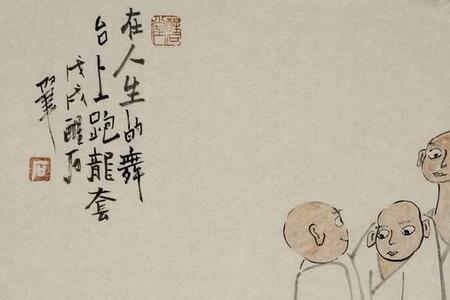 在人生的舞
台上跑龍套
戊戌醒石